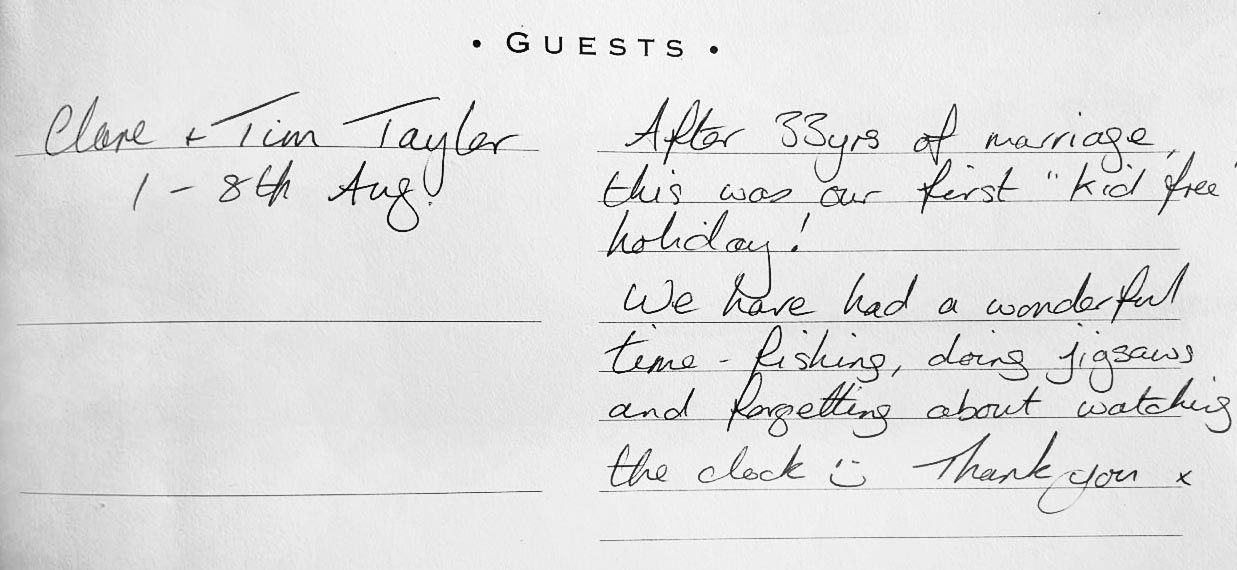 • GUESTS •
Clare + Tim Tayler
1 - 8th Aug!
After 33yrs of marriage,
this was our first "kid free"
holiday!
We have had a wonderful
time - fishing, doing jigsaws
and forgetting about watching
the clock :) Thank you x